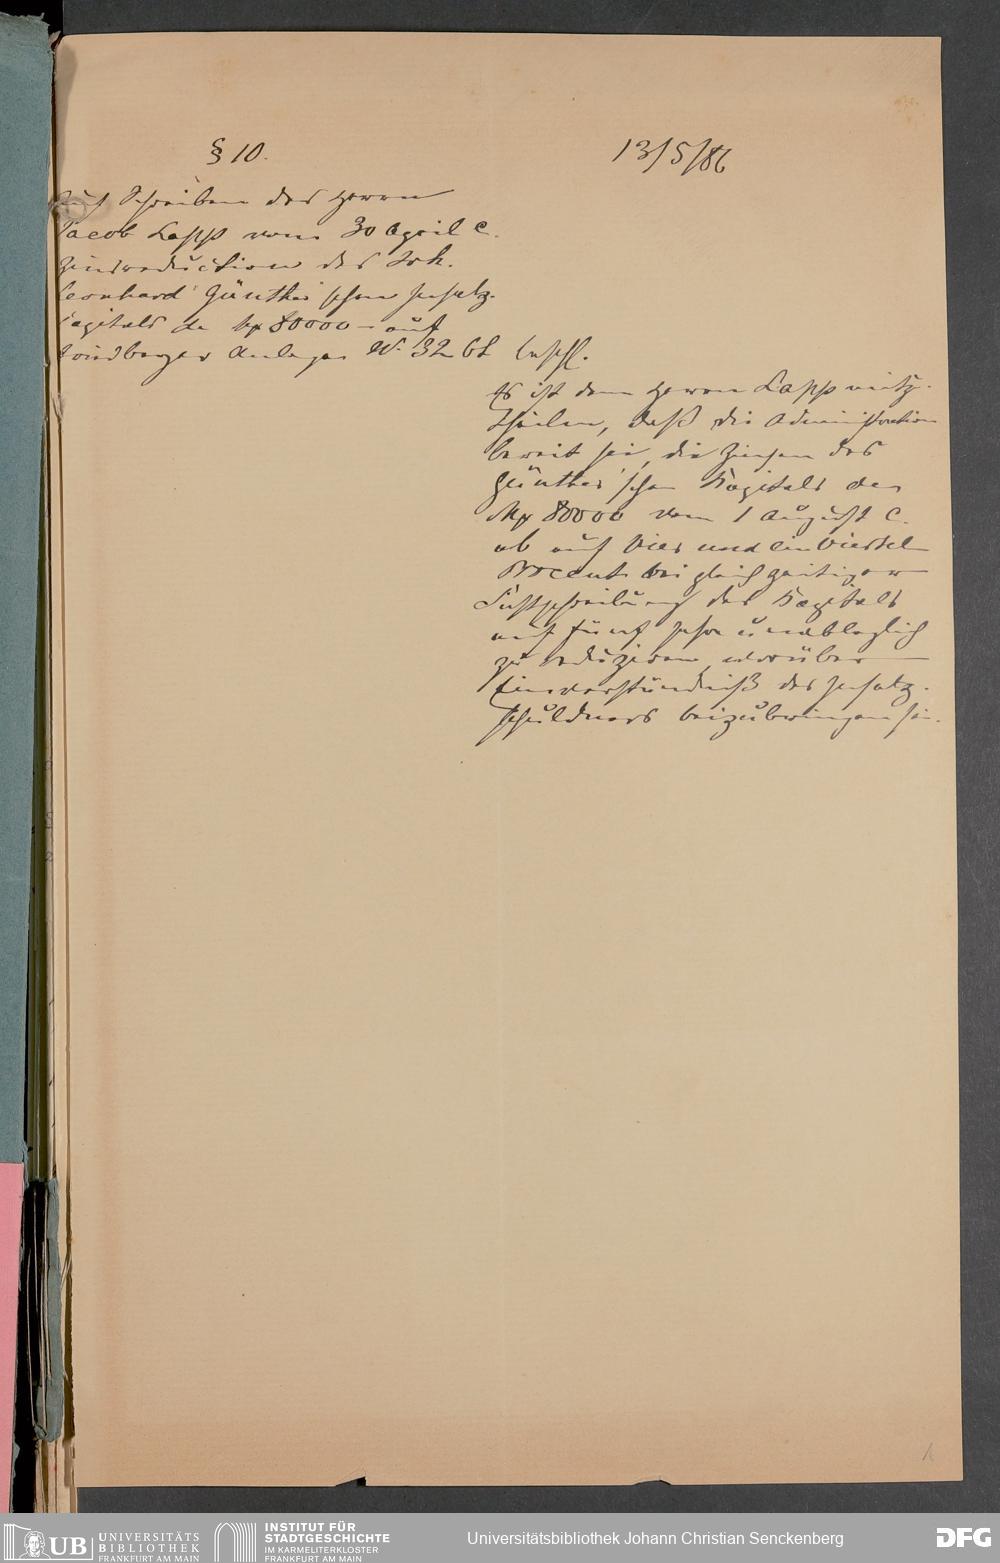 § 10.
13/5/86
Auf Schreiben des Herrn
Jacob Lapp vom 30 April c.
Zinsreduction des Joh.
Leonhard Günther'schen Insatz-
Capitals de M 80000 – auf
Friedberger Anlage No 32 bt
beschl.
Es ist dem Herrn Lapp mitzu-
theilen, daß die Administration
bereit sei, die Zinsen des
Günther'schen Kapitals der
M 80000 vom 1 August c.
ab auf Vier und ein Viertel
Procent bei gleichzeitiger
Festschreibung des Kapitals
auf fünf Jahre unableglich
zu reduziren, worüber
Einverständniß des Insatz-
schuldners beizubringen sei.
UB
UNIVERSITÄTS
BIBLIOTHEK
FRANKFURT AM MAIN
INSTITUT FÜR
STADTGESCHICHTE
IM KARMELITERKLOSTER
FRANKFURT AM MAIN
Universitätsbibliothek Johann Christian Senckenberg
DFG